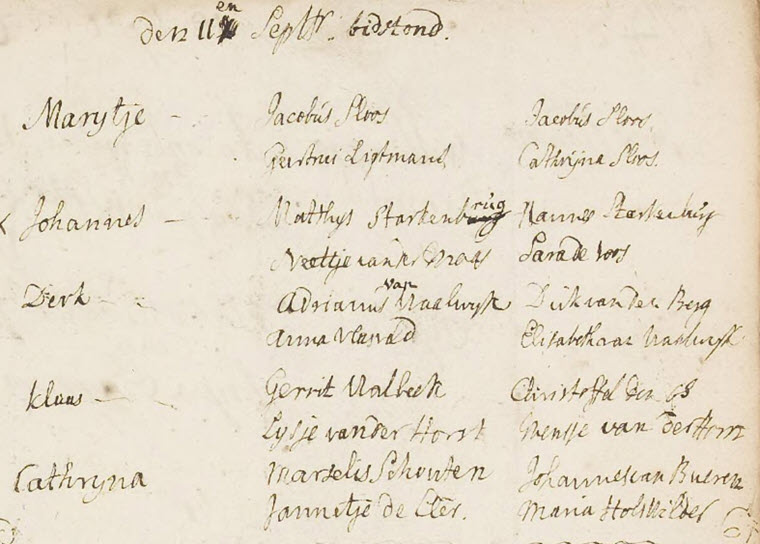 den 11en Septbr. bidstond.
Marytje - Jacobus Sloos Jacobus Sloos
Geertrui Ligtmand Cathryna Sloos.
Johannes - Matthys Starkenbrug Hannes Starkenburg
Neeltje van der Maas Sara de Voos
Derk - - Adrianus van Naalwyk Dirk van der Berg
Anna Elisabeth van Naalwyk
Klaas - - Gerrit Nalbeek Christoffel den
Lysje van der Horst Mensje van der Horst
Cathryna Marselis Schouten Johannes van Bueren
Jannetje de Maria